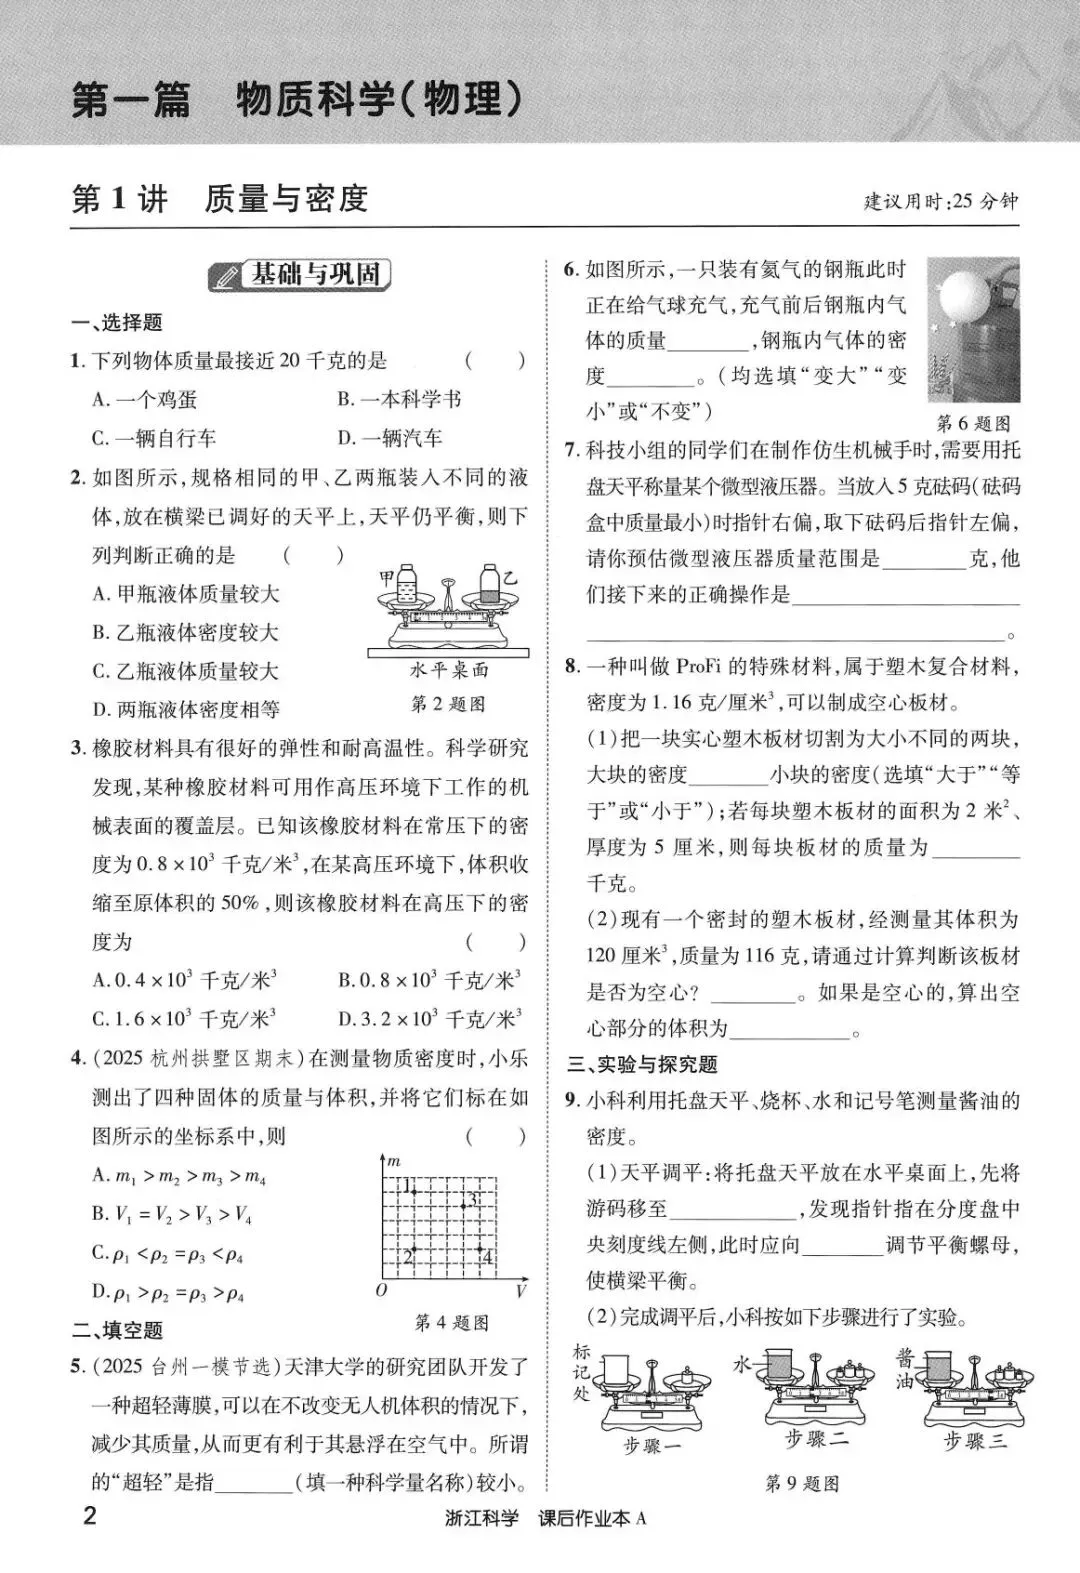 第一篇　物质科学(物理)
第1讲　质量与密度
建议用时:25分钟
基础与巩固
一、选择题
1. 下列物体质量最接近20千克的是 (　　)
A. 一个鸡蛋　B. 一本科学书
C. 一辆自行车　D. 一辆汽车
2. 如图所示,规格相同的甲、乙两瓶装入不同的液
体,放在横梁已调好的天平上,天平仍平衡,则下
列判断正确的是 (　　)
A. 甲瓶液体质量较大
B. 乙瓶液体密度较大
C. 乙瓶液体质量较大
D. 两瓶液体密度相等
甲　乙
水平桌面
第2题图
3. 橡胶材料具有很好的弹性和耐高温性。科学研究
发现,某种橡胶材料可用作高压环境下工作的机
械表面的覆盖层。已知该橡胶材料在常压下的密
度为0.8×10³千克/米³,在某高压环境下,体积收
缩至原体积的50%,则该橡胶材料在高压下的密
度为 (　　)
A. 0.4×10³千克/米³　B. 0.8×10³千克/米³
C. 1.6×10³千克/米³　D. 3.2×10³千克/米³
4. (2025杭州拱墅区期末)在测量物质密度时,小乐
测出了四种固体的质量与体积,并将它们标在如
图所示的坐标系中,则 (　　)
A. m₁>m₂>m₃>m₄
B. V₁=V₂>V₃>V₄
C. ρ₁<ρ₂=ρ₃<ρ₄
D. ρ₁>ρ₂=ρ₃>ρ₄
m
1
3
2　4
O　V
第4题图
二、填空题
5. (2025台州一模节选)天津大学的研究团队开发了
一种超轻薄膜,可以在不改变无人机体积的情况下,
减少其质量,从而更有利于其悬浮在空气中。所谓
的“超轻”是指________(填一种科学量名称)较小。
6. 如图所示,一只装有氦气的钢瓶此时
正在给气球充气,充气前后钢瓶内气
体的质量________,钢瓶内气体的密
度________。(均选填“变大”“变
小”或“不变”)
第6题图
7. 科技小组的同学们在制作仿生机械手时,需要用托
盘天平称量某个微型液压器。当放入5克砝码(砝码
盒中质量最小)时指针右偏,取下砝码后指针左偏,
请你预估微型液压器质量范围是________克,他
们接下来的正确操作是____________________
________________________________________。
8. 一种叫做ProFi的特殊材料,属于塑木复合材料,
密度为1.16克/厘米³,可以制成空心板材。
(1)把一块实心塑木板材切割为大小不同的两块,
大块的密度________小块的密度(选填“大于”“等
于”或“小于”);若每块塑木板材的面积为2米²、
厚度为5厘米,则每块板材的质量为________
千克。
(2)现有一个密封的塑木板材,经测量其体积为
120厘米³,质量为116克,请通过计算判断该板材
是否为空心? ________。如果是空心的,算出空
心部分的体积为____________。
三、实验与探究题
9. 小科利用托盘天平、烧杯、水和记号笔测量酱油的
密度。
(1)天平调平:将托盘天平放在水平桌面上,先将
游码移至____________,发现指针指在分度盘中
央刻度线左侧,此时应向________调节平衡螺母,
使横梁平衡。
(2)完成调平后,小科按如下步骤进行了实验。
标记处　水　酱油
步骤一　步骤二　步骤三
第9题图
2
浙江科学　课后作业本A